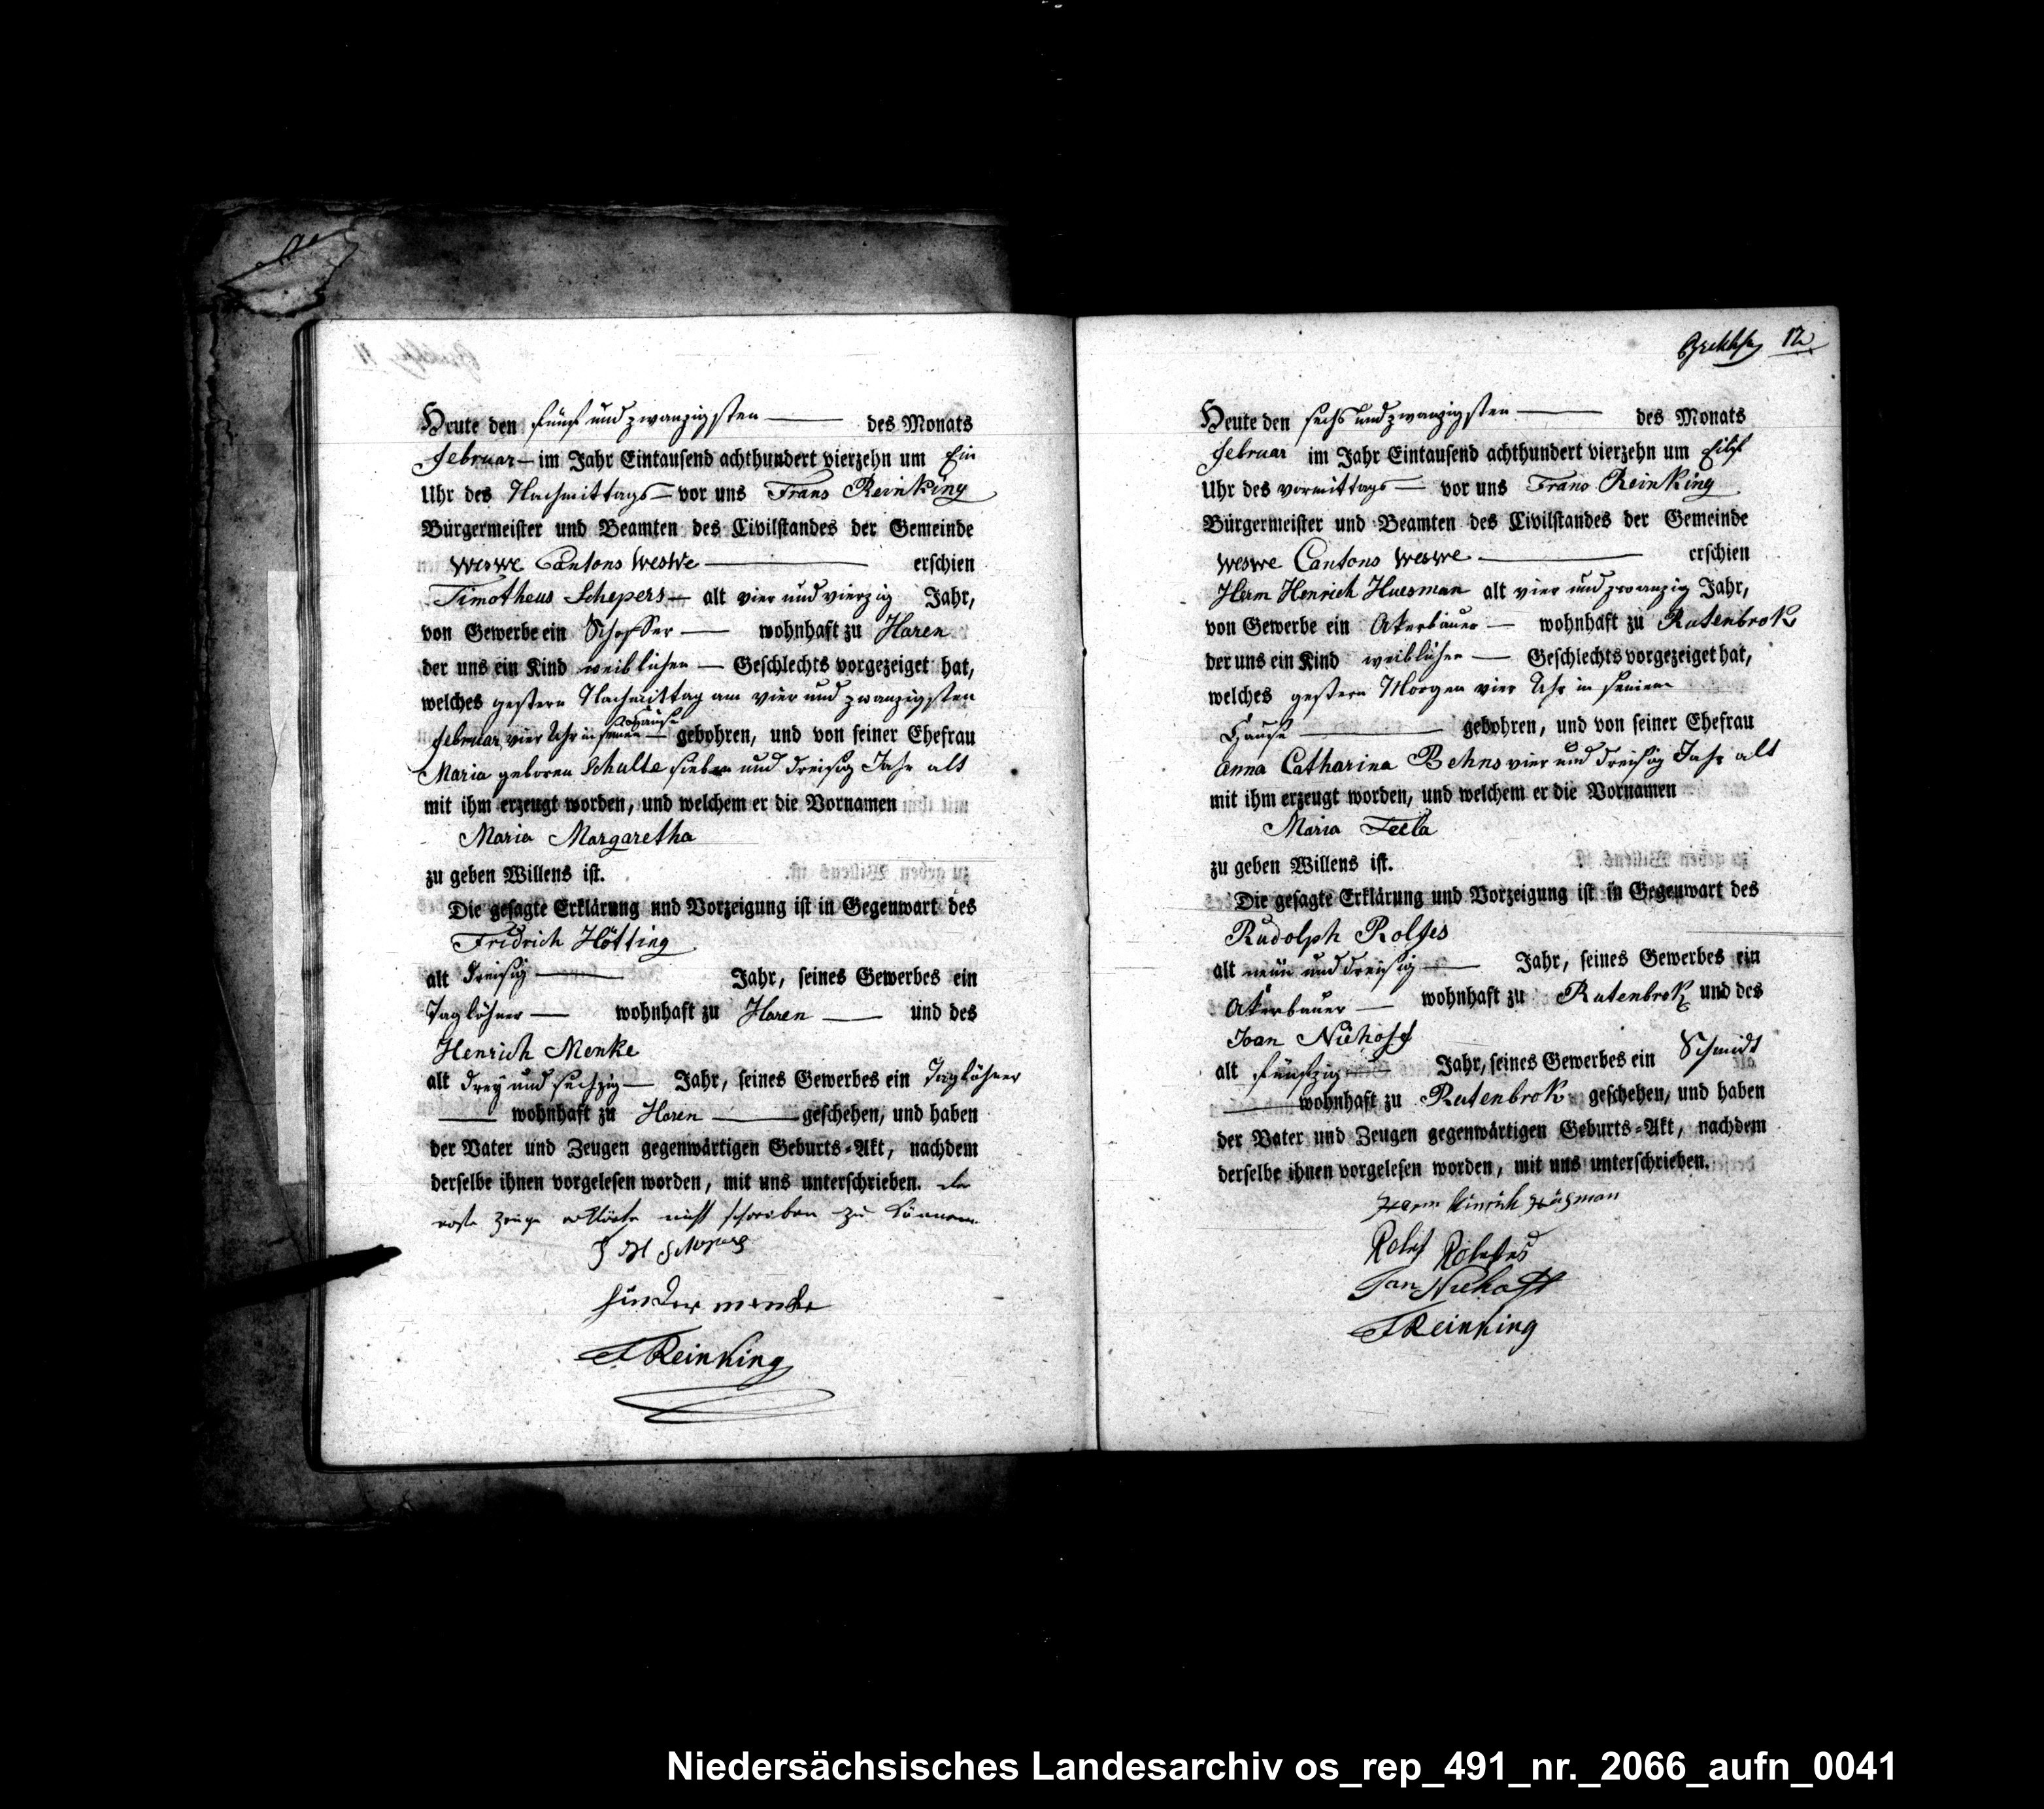 Heute den fünf und zwanzigsten — des Monats
februar — im Jahr Eintausend achthundert vierzehn um Ein
Uhr des Nachmittags — vor uns Frans Reinking
Bürgermeister und Beamten des Civilstandes der Gemeinde
weswe Cantons weswe — erschien
Timotheus Schepers — alt vier und vierzig Jahr,
von Gewerbe ein — wohnhaft zu Haren
der uns ein Kind weiblichen — Geschlechts vorgezeiget hat,
welches gestern Nachmittag am vier und zwanzigsten
februar vier Uhr in seinem Hause — gebohren, und von seiner Ehefrau
Maria geboren Schulte sieben und dreisig Jahr alt
mit ihm erzeugt worden, und welchem er die Vornamen
Maria Margaretha
zu geben Willens ist.
Die gesagte Erklärung und Vorzeigung ist in Gegenwart des
Fridrich Hötting
alt dreisig — Jahr, seines Gewerbes ein
Taglöhner — wohnhaft zu Haren — und des
Henrich Menke
alt drey und sechzig — Jahr, seines Gewerbes ein Taglöhner
— wohnhaft zu Haren — geschehen, und haben
der Vater und Zeugen gegenwärtigen Geburts-Akt, nachdem
derselbe ihnen vorgelesen worden, mit uns unterschrieben. der
erste Zeuge erklärte nicht schreiben zu können
Schepers
menke
F Reinking
12
Heute den sechs und zwanzigsten — des Monats
februar im Jahr Eintausend achthundert vierzehn um Eilf
Uhr des vormittags — vor uns Frans Reinking
Bürgermeister und Beamten des Civilstandes der Gemeinde
weswe Cantons weswe — erschien
Herm Henrich Huesman alt vier und zwanzig Jahr,
von Gewerbe ein Akerbauer — wohnhaft zu Rutenbrok
der uns ein Kind weiblichen — Geschlechts vorgezeiget hat,
welches gestern Morgen vier Uhr in seinem
Hause — gebohren, und von seiner Ehefrau
Anna Catharina Behns vier und dreisig Jahr alt
mit ihm erzeugt worden, und welchem er die Vornamen
Maria Tecla
zu geben Willens ist.
Die gesagte Erklärung und Vorzeigung ist in Gegenwart des
Rudolph Rolfes
alt neun und dreisig — Jahr, seines Gewerbes ein
Akerbauer — wohnhaft zu Rutenbrok und des
Joan Niehoff
alt fünfzig — Jahr, seines Gewerbes ein Schmidt
— wohnhaft zu Rutenbrok geschehen, und haben
der Vater und Zeugen gegenwärtigen Geburts-Akt, nachdem
derselbe ihnen vorgelesen worden, mit uns unterschrieben.
Herm Hinrich Hüsman
Rolef Rolefes
Jan Niehoff
F Reinking
Niedersächsisches Landesarchiv os_rep_491_nr._2066_aufn_0041